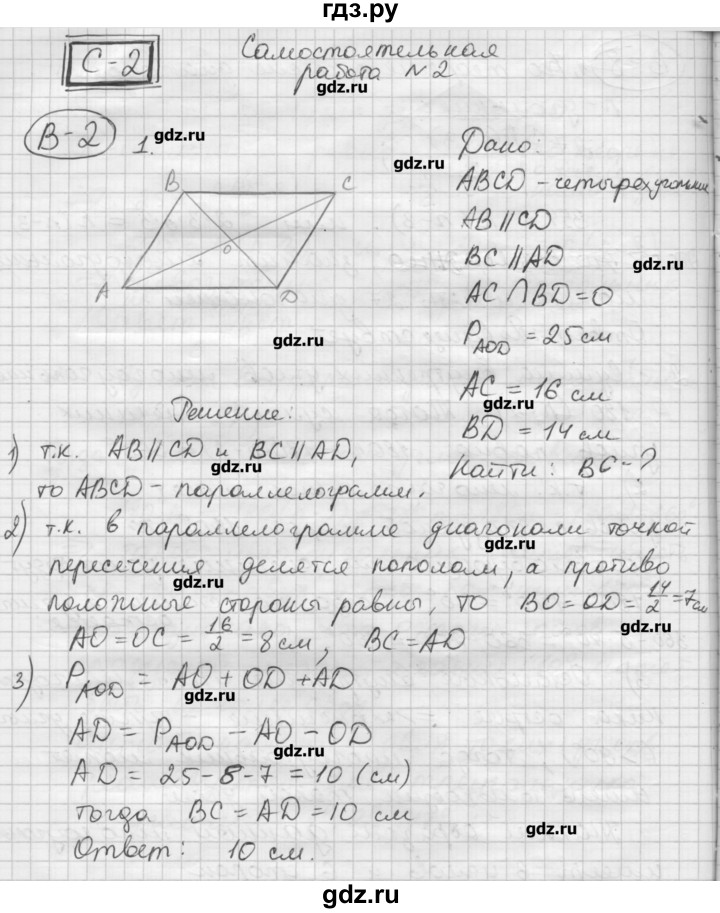 гдз.ру
С-2
Самостоятельная
работа №2
gdz.ru
В-2
1.
gdz.ru
B
C
O
A
D
gdz.ru
Дано:
gdz.ru
ABCD – четырехугольник
AB || CD
BC || AD
gdz.ru
AC ∩ BD = O
P_AOD = 25 см
AC = 16 см
gdz.ru
BD = 14 см
Найти: BC - ?
Решение:
1) т.к. AB || CD и BC || AD,
gdz.ru
то ABCD – параллелограмм.
2) т.к. в параллелограмме диагонали точкой
gdz.ru
пересечения делятся пополам, а противо
gdz.ru
положные стороны равны, то BO = OD = 14/2 = 7 см
gdz.ru
AO = OC = 16/2 = 8 см, BC = AD
3) P_AOD = AO + OD + AD
gdz.ru
AD = P_AOD – AO – OD
gdz.ru
AD = 25 – 8 – 7 = 10 (см)
тогда BC = AD = 10 см
gdz.ru
Ответ: 10 см.
gdz.ru